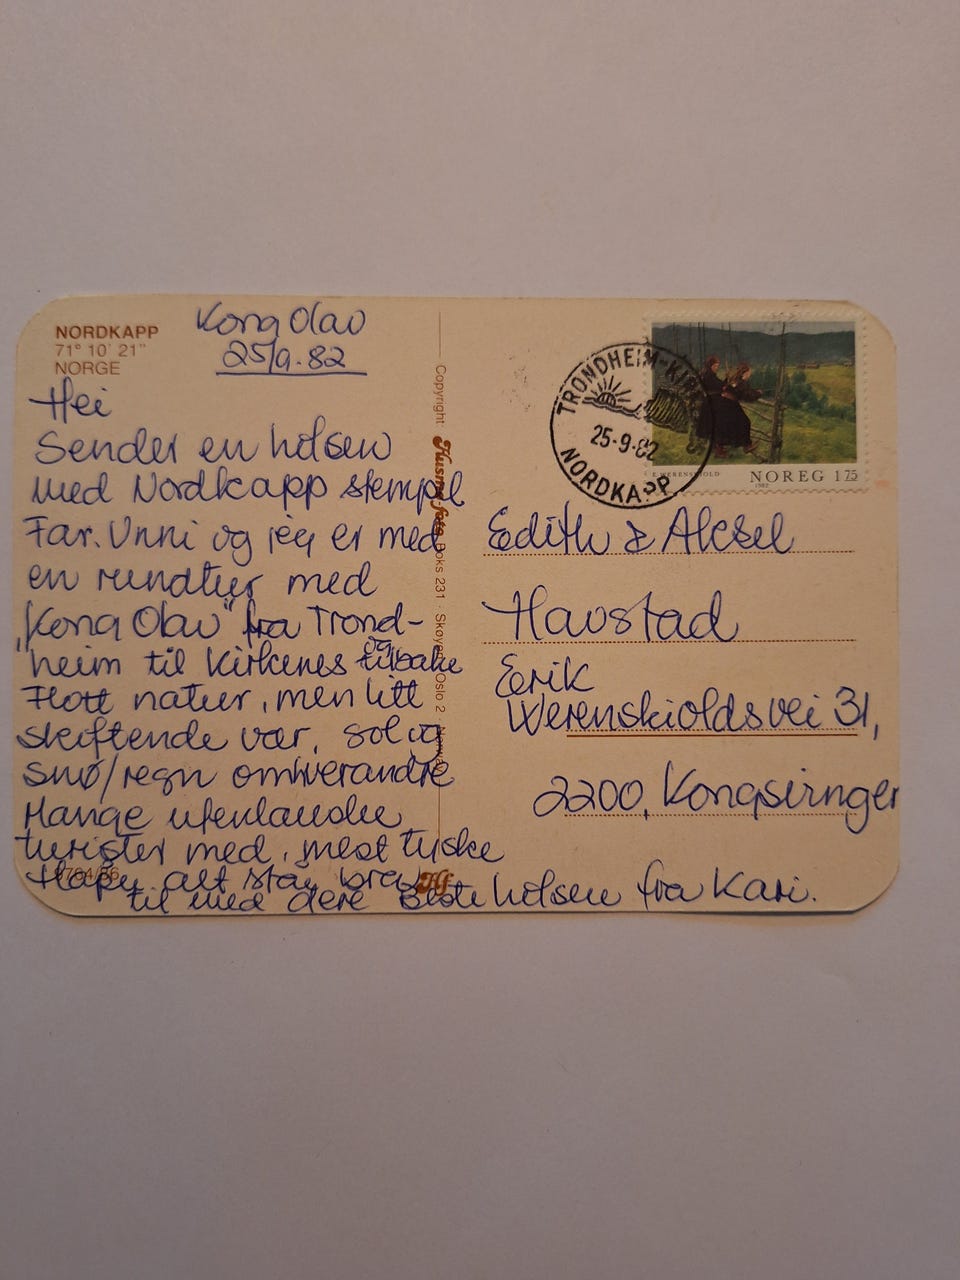 NORDKAPP
71° 10' 21"
NORGE
Kong Olav
25/9-82
Hei
Sender en helsen
med Nordkapp stempel
Far. Unni og jeg er med
en rundtur med
"Kong Olav" fra Trond-
heim til Kirkenes og tilbake
Flott natur, men litt
skiftende vær, sol og
snø/regn omhverandre
Mange utenlandske
turister med, mest tyske
Håper alt står bra
til med dere Beste helsen fra Kari.
Copyright: Husmo-foto, Boks 231 · Skøyen, Oslo 2 · Norway
Hf
TRONDHEIM-KIRKENES
25-9-82
NORDKAPP
E. WERENSKIOLD
NOREG 175
1982
Edith & Aksel
Havstad
Erik
Werenskioldsvei 31,
2200, Kongsvinger